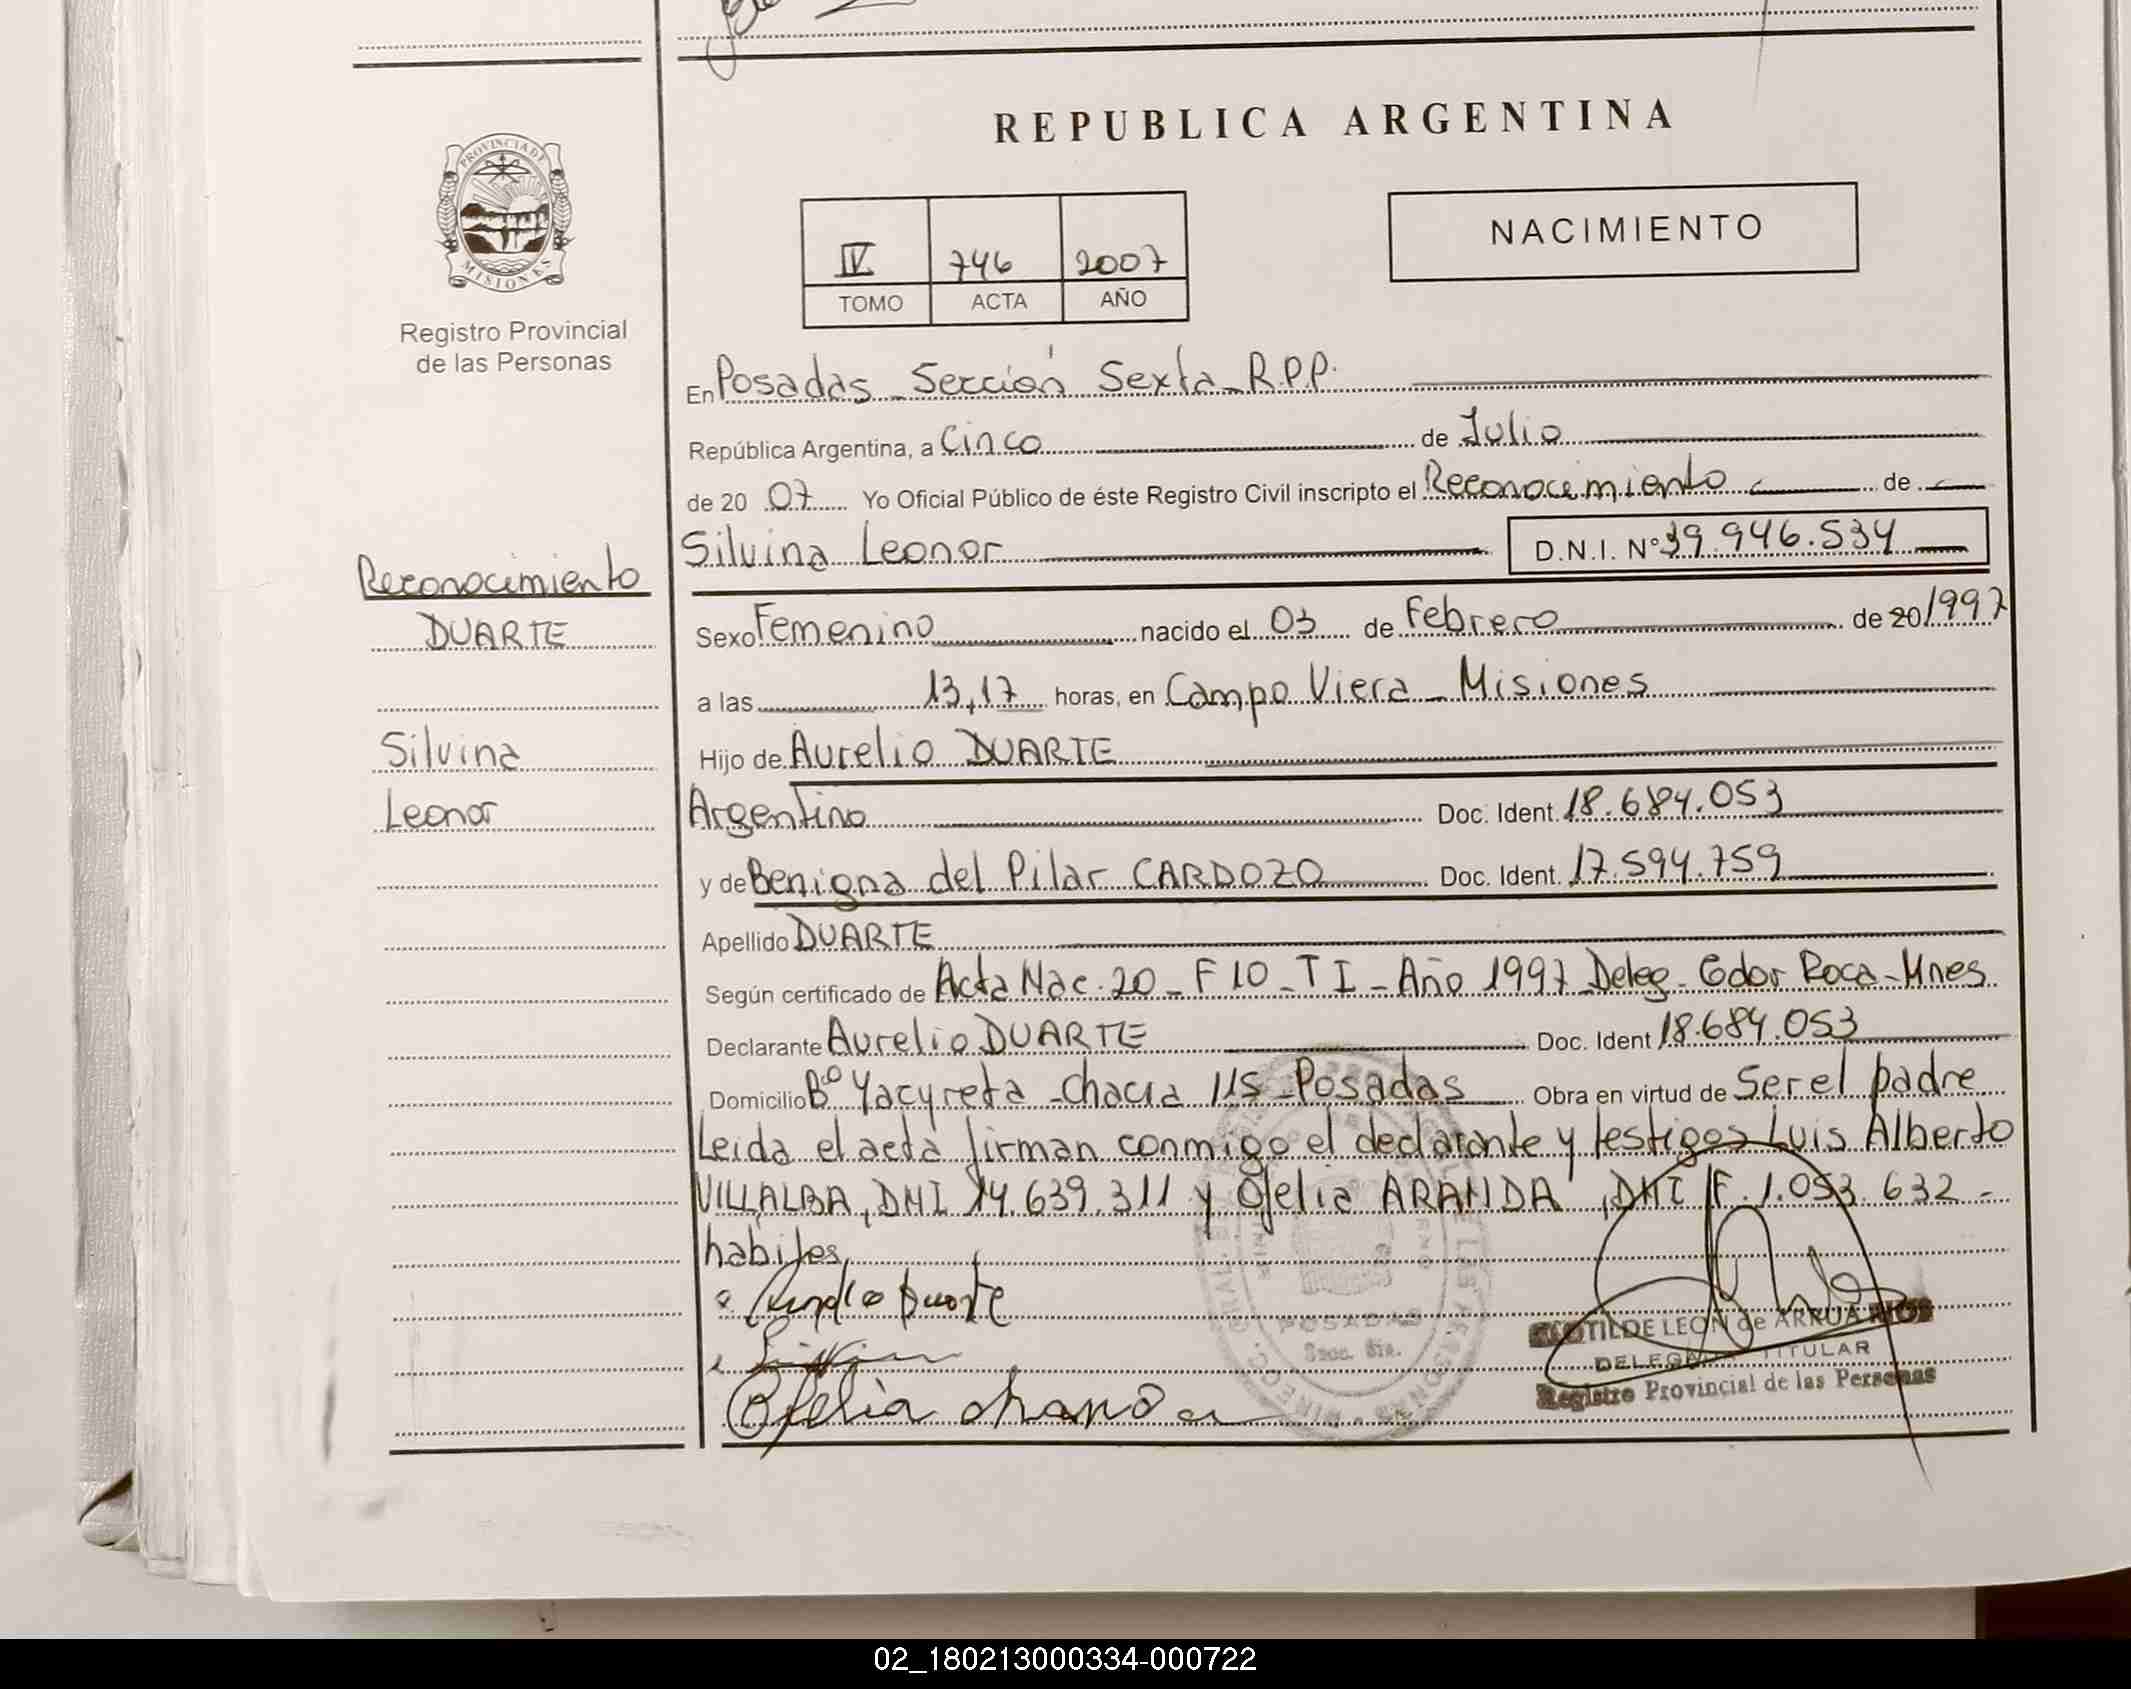 REPUBLICA ARGENTINA
PROVINCIA DE
MISIONES
Registro Provincial
de las Personas
IV 746 2007
TOMO ACTA AÑO
NACIMIENTO
En Posadas - Sección Sexta - R.P.P.
República Argentina, a Cinco de Julio
de 20 07 Yo Oficial Público de éste Registro Civil inscripto el Reconocimiento de
Silvina Leonor D.N.I. N° 39.946.534
Reconocimiento
DUARTE
Silvina
Leonor
Sexo Femenino nacido el 03 de Febrero de 20 1997
a las 13,17 horas, en Campo Viera - Misiones
Hijo de Aurelio DUARTE
Argentino Doc. Ident. 18.684.053
y de Benigna del Pilar CARDOZO Doc. Ident. 17.594.759
Apellido DUARTE
Según certificado de Acta Nac. 20 - F 10 - T I - Año 1997 - Deleg. Gdor Roca - Mnes
Declarante Aurelio DUARTE Doc. Ident 18.684.053
Domicilio Bº Yacyreta - chacra 115 - Posadas Obra en virtud de Ser el padre
Leida el acta firman conmigo el declarante y testigos Luis Alberto
VILLALBA, DNI 14.639.311 y Ofelia ARANDA, DNI F. 1.053.632 -
habiles
Aurelio Duarte
Ofelia Aranda
POSADAS
Secc. 6ta.
CLOTILDE LEON de ARRUA RIOS
DELEGADA TITULAR
Registro Provincial de las Personas
02_180213000334-000722